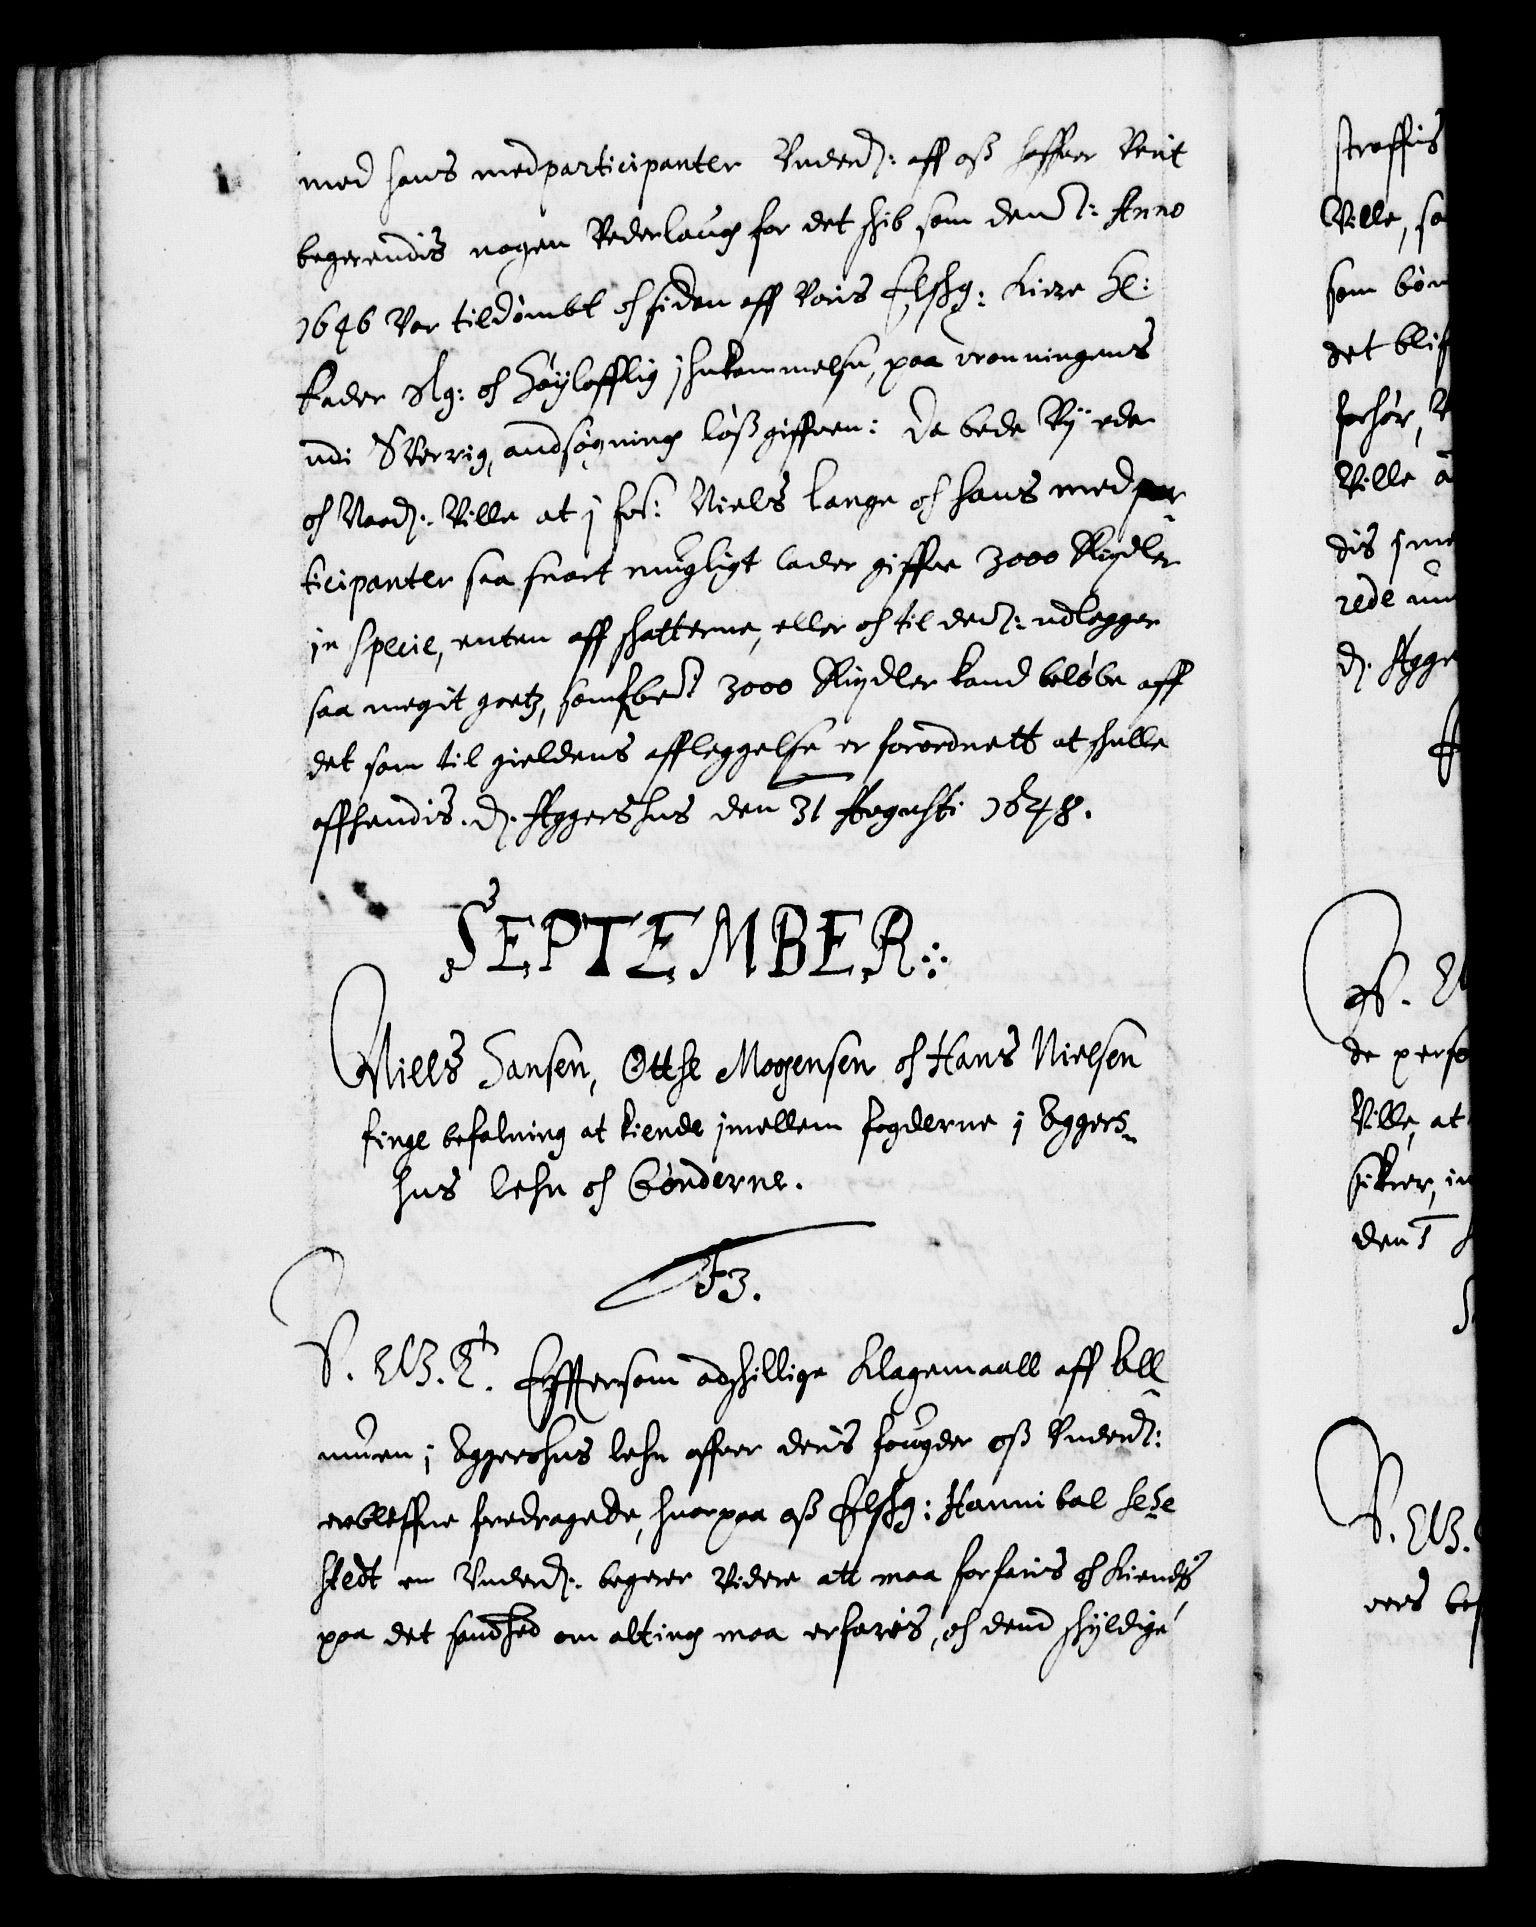 med hans medparticipanter Underd: aff oß haffuer Verit
begerendis nogen Vederlaug for det skib som dem: Anno
1646 Var tildömbt och siden aff Voris Elskg: kiere Hr:
Fader Slg: och höylofflig ihukommelse, paa dronningens
udi SVerrig, andsögning lößgiffuen: Da bede Vij eder
och Naad: Ville at i for: Niels Lange och hans medpar
ticipanter saa snart mugligt lader giffue 3000 Rixdler
in specie, enten aff skatterne, eller och til dem: udlegger
saa megit goetz, som forbemt 3000 Rixdler kand belöbe aff
det som til gieldens affleggelse er forordnett at skulle
affhendis. D. Aggershus den 31 Augusti 1648.
SEPTEMBER:
Niells Hansen, Otthe Mogensen och Hans Nielsen
finge befalning at kiende imellem fogderne i Agger¬
hus lehn och bönderne.
F3.
V. G. T. Effttersom adskillige klagemaall aff All
muen i Aggershus lehn offuer deris fougder oß Underd:
erbleffne fredragede, huorpaa oß Elskg: Hannibal Sehe
stedt en Underd: begerer Videre att maa forfaris och kiendis
paa det sandhed om alting maa erfaris, och dend skyldige
straffis
Ville, sa
som bön
det blif
forhör, V
Ville
dis
rede
D. Agge
de perso
Ville, at
sikrer, in
V. G.